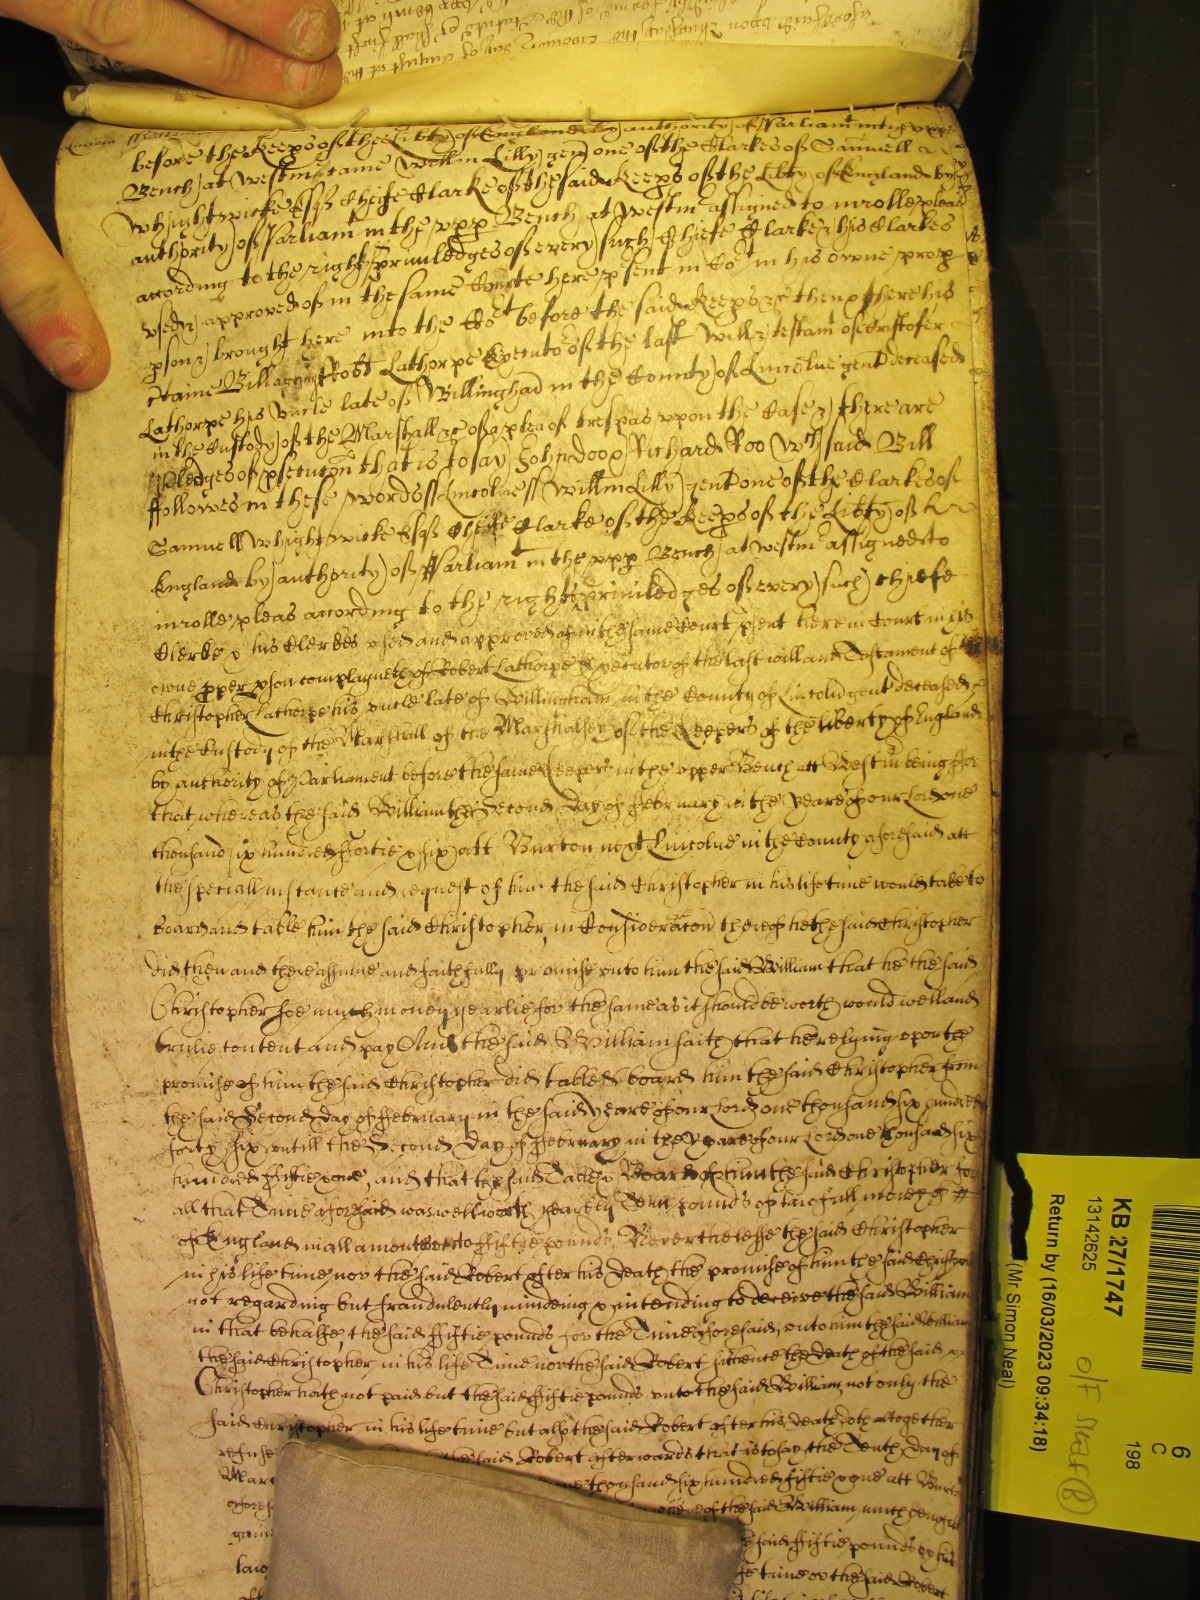 before the Keeps of the Libty of England by authority of Parliamt in the upp
Bench at Westm came Willm Lilly gent one of the Clarkes of Samuell
Whightwicke Esq Cheife Clarke of the said Keeps of the Libty of England by
authority of Parliamt in the upp Bench at Westm assigned to inrolle pleas
according to the rights priviledges of every such Chiefe Clarke & his Clarkes
used & approved of in the same Courte here psent in Cot in his owne prop
pson & brought here into the Cot before the said Keeps &c then & there his
ctaine Bill against Robt Lathorpe Executor of the last will & testamt of Cristofer
Lathorpe his uncle late of Willingham in the County of Lincolne gent deceased
in the Custody of the Marshall &c of a plea of trespas upon the Case & there are
pledges of psecution that is to say John Doo & Richard Roo wch said Bill
followes in these words ss Lincolne ss Willm Lilly gent one of the Clarkes of
Samuell Whightwicke Esq Cheife Clarke of the Keeps of the Libty of
England by authority of Parliamt in the upp Bench at Westm assigned to
inrolle pleas according to the rights & priviledges of every such Chiefe
Clerke & his Clerkes used and approved of in the same Court psent here in Court in his
owne pper pson complayneth of Robert Lathorpe Executor of the last will and Testament of
Christopher Lathorpe his uncle late of Willingham in the County of Lincoln gent deceased
in the Custody of the Marshall of the Marshalsey of the Keepers of the liberty of England
by authority of Parliament before the same Keepers in the upper Bench att Westm being ffor
that whereas the said William the Second day of ffebruary in the yeare of our Lord one
thousand six hundred ffortie & six att Burton next Lincolne in the County aforesaid att
the speciall instance and request of him the said Christopher in his life time would take to
board and table him the said Christopher, in Consideracon thereof he the said Christopher
did then and there assume and faithfully promise unto him the said William that he the said
Christopher soe much money yearlie for the same as it should be worth would well and
trulie content and pay And the said William saith that he relying upon the
promise of him the said Christopher did table & board him the said Christopher from
the said Second day of ffebruary in the said yeare of our Lord one thousand six hundred
forty six untill the Second day of ffebruary in the yeare of our Lord one thousand six
hundred fiftie & one, and that the said Table & Board of him the said Christopher for
all that Time aforesaid was well worth yearely Tenn pounds of lawfull money
of England in all amounted to ffiftie pounds Neverthelesse the said Christopher
in his life time nor the said Robert after his death the promise of him the said Christopher
not regarding but fraudulently mindeing & intending to deceive the said William
in that behalfe, the said ffiftie pounds for the Time aforesaid, unto him the said William
the said Christopher in his life Time nor the said Robert sithence the death of the said
Christopher hath not paid but the said ffiftie pounds unto the said William, not only the
said Christopher in his life time but also the said Robert after his death doth altogether
refuse the said Robert afterwards that is to say the Tenth day of
thousand six hundred fiftie & one att
of the said William, much
said ffiftie pounds
life time or the said Robert
KB 27/1747
13142625
Return by (16/03/2023 09:34:18)
(Mr Simon Neal)
6
C
198